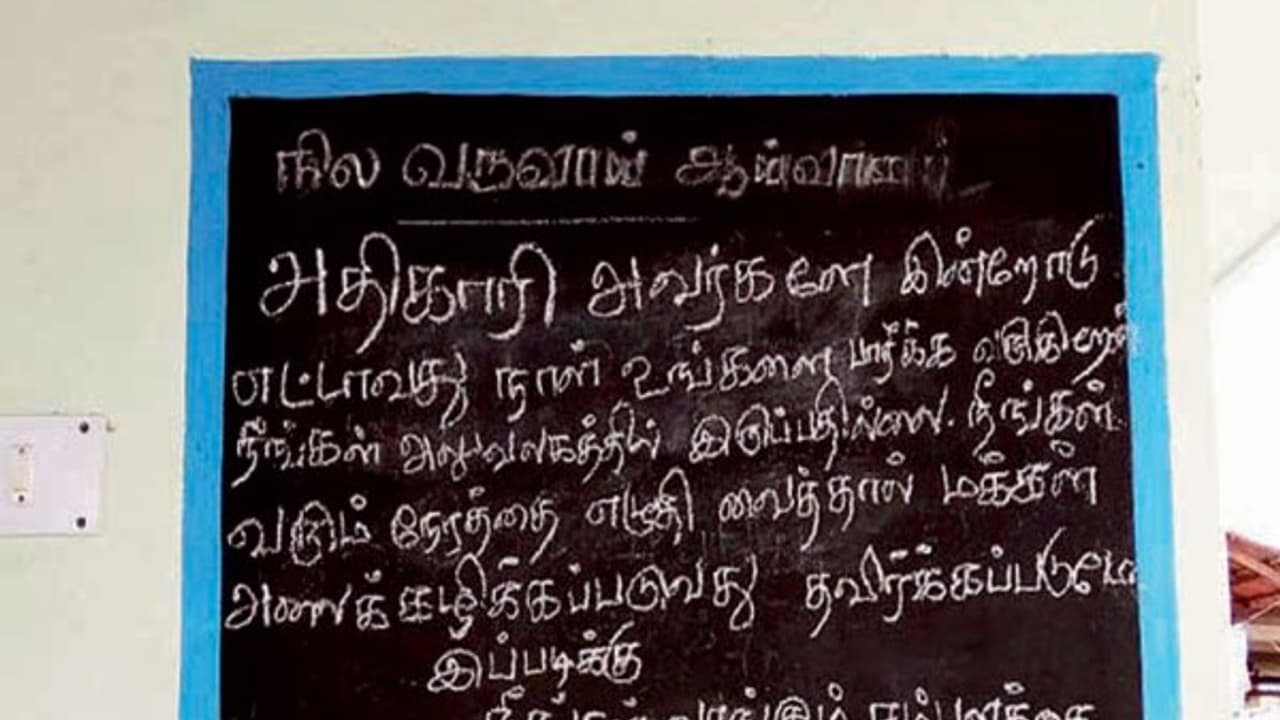 நில வருவாய் ஆய்வாளர்
அதிகாரி அவர்களே இன்றோடு
எட்டாவது நாள் உங்களை பார்க்க வருகிறேன்
நீங்கள் அலுவலகத்தில் இருப்பதில்லை. நீங்கள்
வரும் நேரத்தை எழுதி வைத்தால் மக்கள்
அலைக்கழிக்கப்படுவது தவிர்க்கப்படுமே
இப்படிக்கு
நீங்கள் வாங்கும் சம்பளத்தை